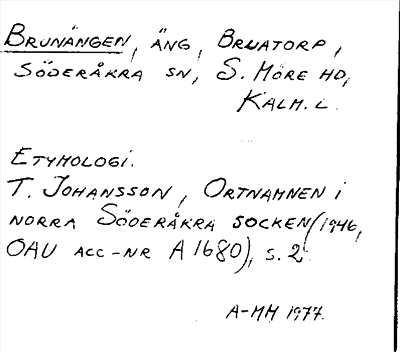 BRUNÄNGEN, ÄNG, BRUATORP,
SÖDERÅKRA SN, S. MÖRE HD,
KALM. L.
ETYMOLOGI.
T. JOHANSSON, ORTNAMNEN I
NORRA SÖDERÅKRA SOCKEN (1946,
OAU ACC-NR A 1680), S. 2.
A-MM 1977.